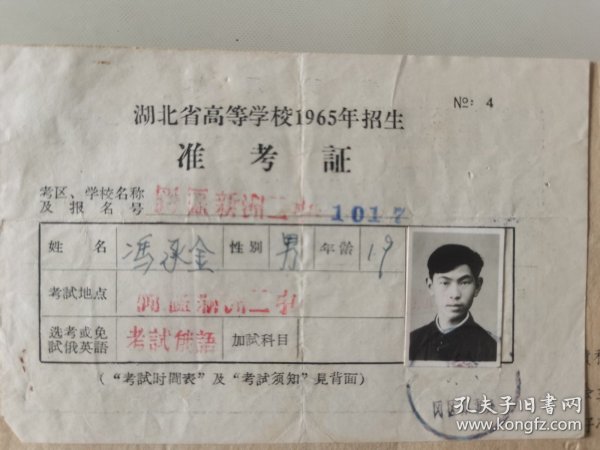 №: 4
湖北省高等学校1965年招生
准考証
考区、学校名称
及报名号 新洲二中 1017
姓名 冯承金 性別 男 年龄 19
考試地点 新洲二中
选考或免
試俄英語 考試俄語 加試科目
(“考試时間表”及“考試须知”見背面)
孔夫子旧书网
www.kongfz.com